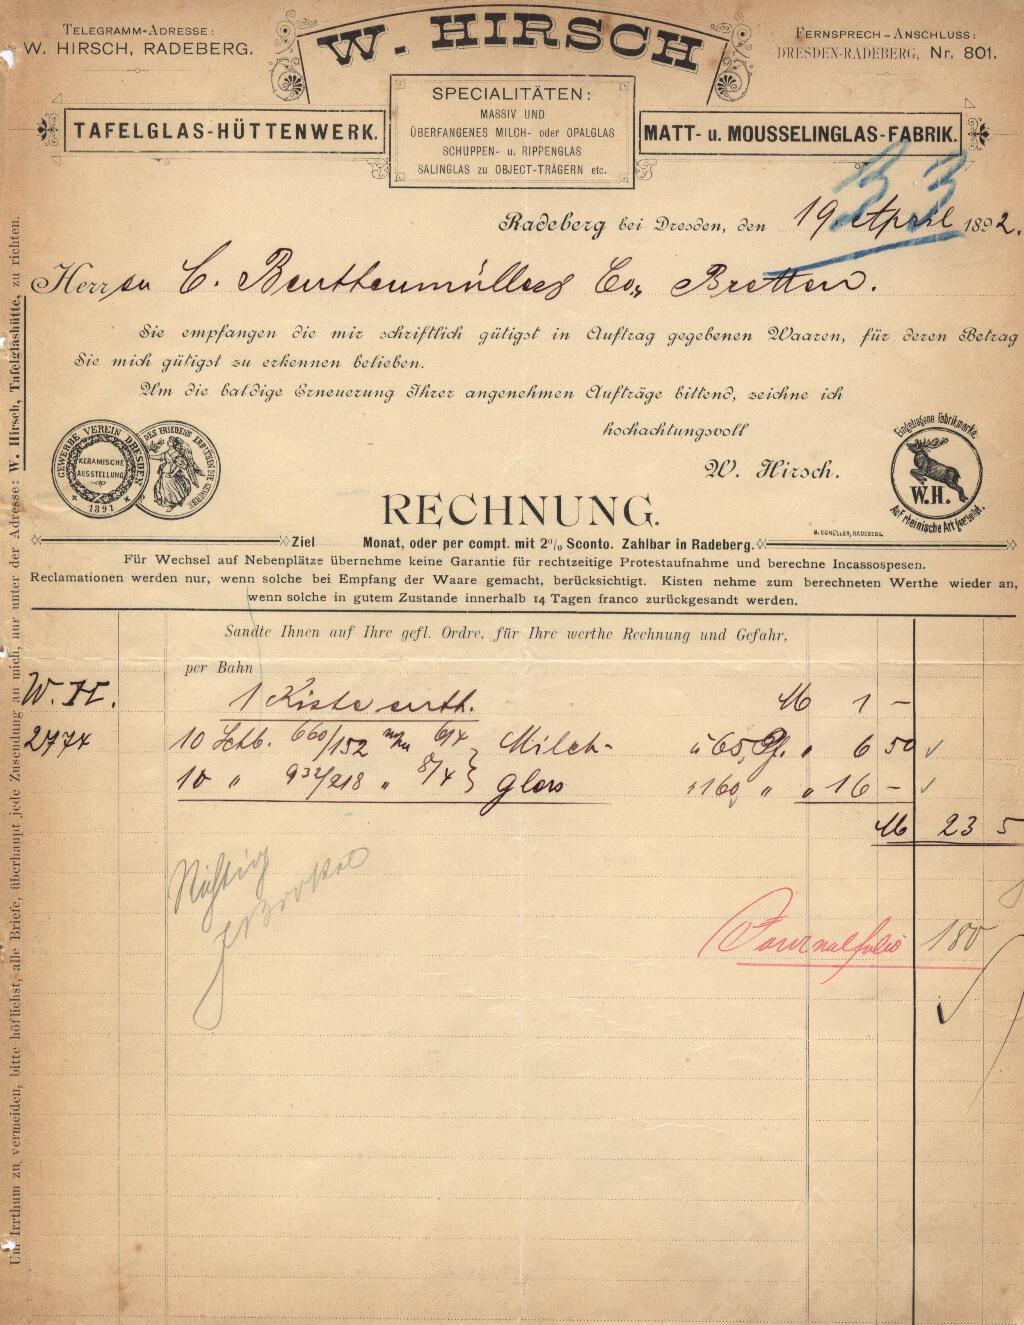 TELEGRAMM-ADRESSE:
W. HIRSCH, RADEBERG.
W. HIRSCH
FERNSPRECH-ANSCHLUSS:
DRESDEN-RADEBERG, Nr. 801.
TAFELGLAS-HÜTTENWERK.
SPECIALITÄTEN:
MASSIV UND
ÜBERFANGENES MILCH- oder OPALGLAS
SCHUPPEN- u. RIPPENGLAS
SALINGLAS zu OBJECT-TRÄGERN etc.
MATT- u. MOUSSELINGLAS-FABRIK.
33
Radeberg bei Dresden, den 19. April 1892.
Herrn C. Beuttenmüller & Co., Bretten.
Sie empfangen die mir schriftlich gütigst in Auftrag gegebenen Waaren, für deren Betrag
Sie mich gütigst zu erkennen belieben.
Um die baldige Erneuerung Ihrer angenehmen Aufträge bittend, zeichne ich
hochachtungsvoll
W. Hirsch.
GEWERBE VEREIN DRESDEN
KERAMISCHE
AUSSTELLUNG
1891
DES FRIEDENS ERFREUEN DIE GEWERBE
Eingetragene Fabrikmarke.
W.H.
Auf rheinische Art gearbeitet.
RECHNUNG.
B. SCHÜLLER, RADEBERG.
Ziel Monat, oder per compt. mit 2% Sconto. Zahlbar in Radeberg.
Für Wechsel auf Nebenplätze übernehme keine Garantie für rechtzeitige Protestaufnahme und berechne Incassospesen.
Reclamationen werden nur, wenn solche bei Empfang der Waare gemacht, berücksichtigt. Kisten nehme zum berechneten Werthe wieder an,
wenn solche in gutem Zustande innerhalb 14 Tagen franco zurückgesandt werden.
Sandte Ihnen auf Ihre gefl. Ordre, für Ihre werthe Rechnung und Gefahr,
per Bahn
W. H. 1 Kiste enth. M 1 -
2774 10 Schb. 660/152 6/4 } Milch- à 65 Pf. " 6 50
10 " 932/218 " 8/4 } glas " 160 " " 16 -
M 23 5
Richtig
Journalfolio 180
Um Irrthum zu vermeiden, bitte höflichst, alle Briefe, überhaupt jede Zusendung an mich, nur unter der Adresse: W. Hirsch, Tafelglashütte, zu richten.